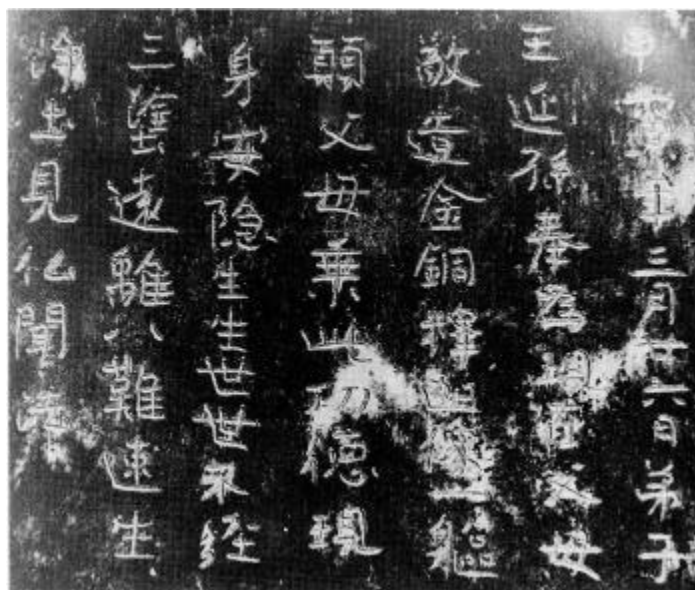 甲寅年三月廿六日弟子
王延孫奉為現在父母
敬造金銅釋迦像一軀
願父母乗此功徳現
身安隠生生世世不経
三塗遠離八難速生
浄土見仏聞法